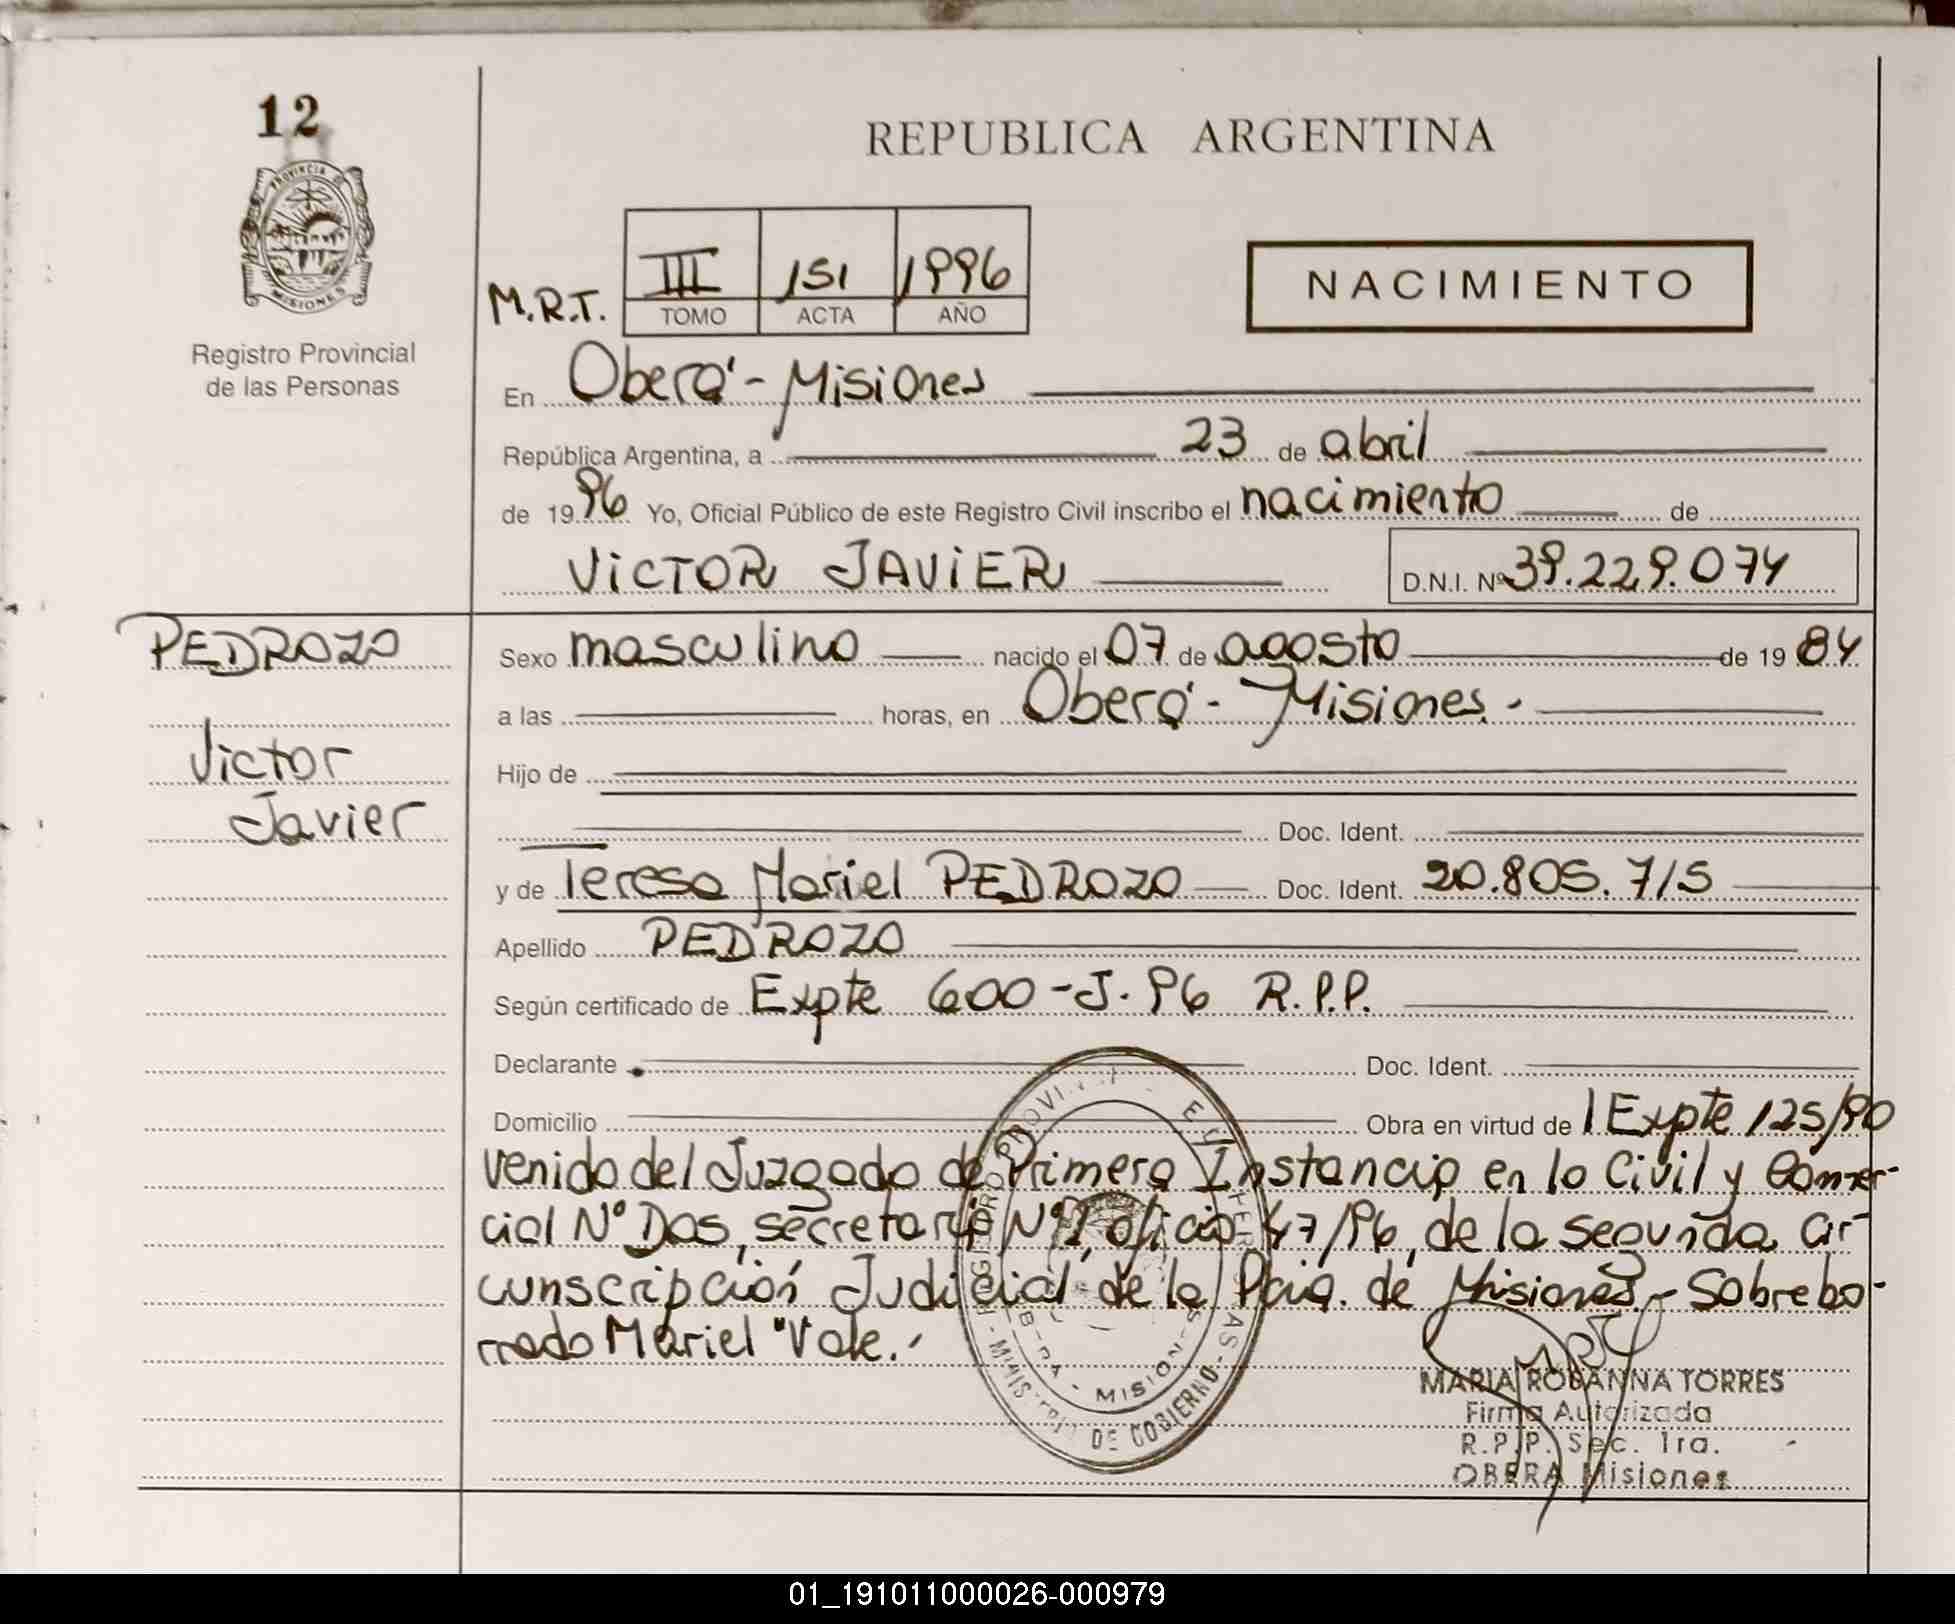 12
PROVINCIA DE
MISIONES
Registro Provincial
de las Personas
REPUBLICA ARGENTINA
M.R.T.
III 151 1996
TOMO ACTA AÑO
NACIMIENTO
En Oberá - Misiones
República Argentina, a 23 de abril
de 1996 Yo, Oficial Público de este Registro Civil inscribo el nacimiento de
VICTOR JAVIER D.N.I. Nº 39.229.074
PEDROZO
Victor
Javier
Sexo masculino nacido el 07 de agosto de 1984
a las horas, en Oberá - Misiones.-
Hijo de
Doc. Ident.
y de Teresa Mariel PEDROZO Doc. Ident. 20.805.715
Apellido PEDROZO
Según certificado de Expte 600-J-96 R.P.P.
Declarante Doc. Ident.
Domicilio Obra en virtud de Expte 125/90
venido del Juzgado de Primera Instancia en lo Civil y Comer-
cial Nº Dos, secretaria Nº, oficio 47/96, de la segunda cir-
cunscripción Judicial de la Pcia. de Misiones.- Sobrebo-
rrado Mariel "Vale.-
MISIONES
MINISTERIO DE GOBIERNO
MARIA ROSANNA TORRES
Firma Autorizada
R.P.P. Sec. 1ra.
OBERA Misiones
01_191011000026-000979